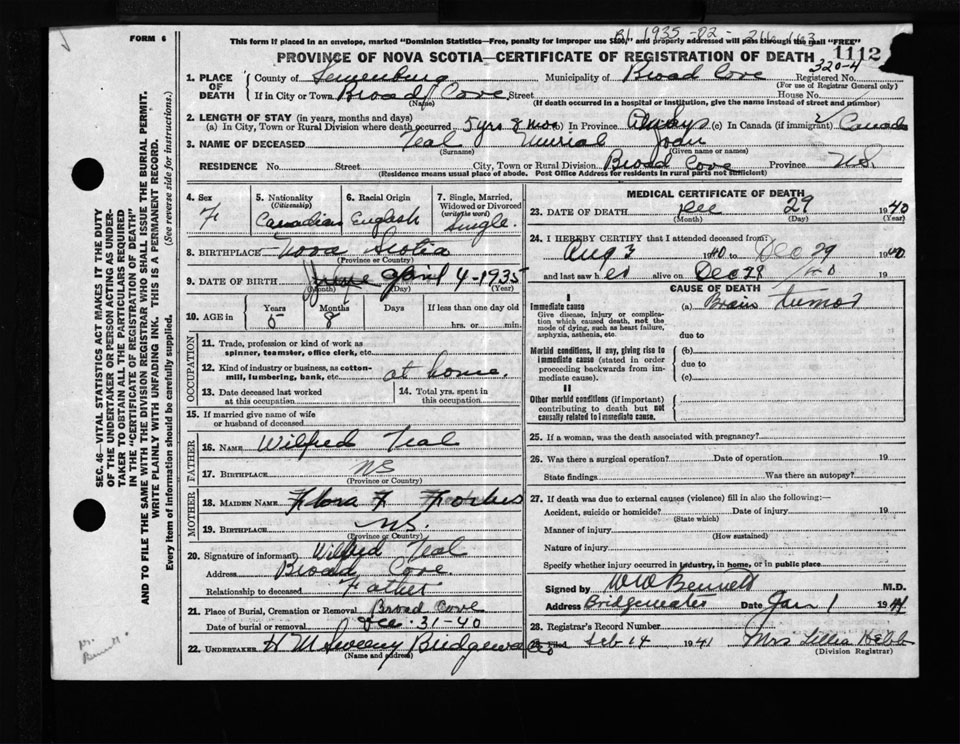 FORM 6
Bl 1935-82-211163
This form if placed in an envelope, marked "Dominion Statistics—Free, penalty for improper use $30," and properly addressed will pass through the mail "FREE"
PROVINCE OF NOVA SCOTIA—CERTIFICATE OF REGISTRATION OF DEATH
1112
320-4
1. PLACE OF DEATH
County of Lunenburg Municipality of Broad Cove Registered No.
(For use of Registrar General only)
If in City or Town Broad Cove Street House No.
(Name) (If death occurred in a hospital or institution, give the name instead of street and number)
2. LENGTH OF STAY (in years, months and days)
(a) In City, Town or Rural Division where death occurred 5 yrs 8 mos (b) In Province Always (c) In Canada (if immigrant) Canada
3. NAME OF DECEASED Teal Murial Joan
(Surname) (Given name or names)
RESIDENCE No. Street City, Town or Rural Division Broad Cove Province N.S.
(Residence means usual place of abode. Post Office Address for residents in rural parts not sufficient)
4. Sex
F
5. Nationality
(Citizenship)
Canadian
6. Racial Origin
English
7. Single, Married, Widowed or Divorced
(write the word)
Single.
8. BIRTHPLACE Nova Scotia
(Province or Country)
9. DATE OF BIRTH April 4-1935
(Month) (Day) (Year)
10. AGE in
Years Months Days If less than one day old
5 8 hrs. or min.
OCCUPATION
11. Trade, profession or kind of work as
spinner, teamster, office clerk, etc.
12. Kind of industry or business, as cotton-
mill, lumbering, bank, etc. at home.
13. Date deceased last worked
at this occupation
14. Total yrs. spent in
this occupation
15. If married give name of wife
or husband of deceased
FATHER
16. NAME Wilfred Teal
17. BIRTHPLACE NS
(Province or Country)
MOTHER
18. MAIDEN NAME Flora F Forbes
19. BIRTHPLACE NS.
(Province or Country)
20. Signature of informant Wilfred Teal
Address Broad Cove.
Relationship to deceased Father
21. Place of Burial, Cremation or Removal Broad Cove
Date of burial or removal Dec. 31-40
22. UNDERTAKER H M Sweeny Bridgewater
(Name and address)
MEDICAL CERTIFICATE OF DEATH
23. DATE OF DEATH Dec 29 1940
(Month) (Day) (Year)
24. I HEREBY CERTIFY that I attended deceased from:
Aug 3 1940 to Dec 29 1940
and last saw her alive on Dec 28/40 19
CAUSE OF DEATH
I
Immediate cause
Give disease, injury or complication which caused death, not the mode of dying, such as heart failure, asphyxia, asthenia, etc.
(a) Brain tumor
due to
Morbid conditions, if any, giving rise to immediate cause (stated in order proceeding backwards from immediate cause).
(b)
due to
(c)
II
Other morbid conditions (if important) contributing to death but not causally related to immediate cause.
25. If a woman, was the death associated with pregnancy?
26. Was there a surgical operation? Date of operation 19
State findings Was there an autopsy?
27. If death was due to external causes (violence) fill in also the following:
Accident, suicide or homicide? Date of injury 19
(State which)
Manner of injury
(How sustained)
Nature of injury
Specify whether injury occurred in industry, in home, or in public place
Signed by W W Bennett M.D.
Address Bridgewater Date Jan 1 1941
28. Registrar's Record Number
Filed Feb 14 1941 Mrs Lillia Hebb
(Division Registrar)
SEC. 46—VITAL STATISTICS ACT MAKES IT THE DUTY
OF THE UNDERTAKER OR PERSON ACTING AS UNDER-
TAKER TO OBTAIN ALL THE PARTICULARS REQUIRED
IN THE "CERTIFICATE OF REGISTRATION OF DEATH"
AND TO FILE THE SAME WITH THE DIVISION REGISTRAR WHO SHALL ISSUE THE BURIAL PERMIT.
WRITE PLAINLY WITH UNFADING INK. THIS IS A PERMANENT RECORD.
Every item of Information should be carefully supplied. (See reverse side for Instructions.)